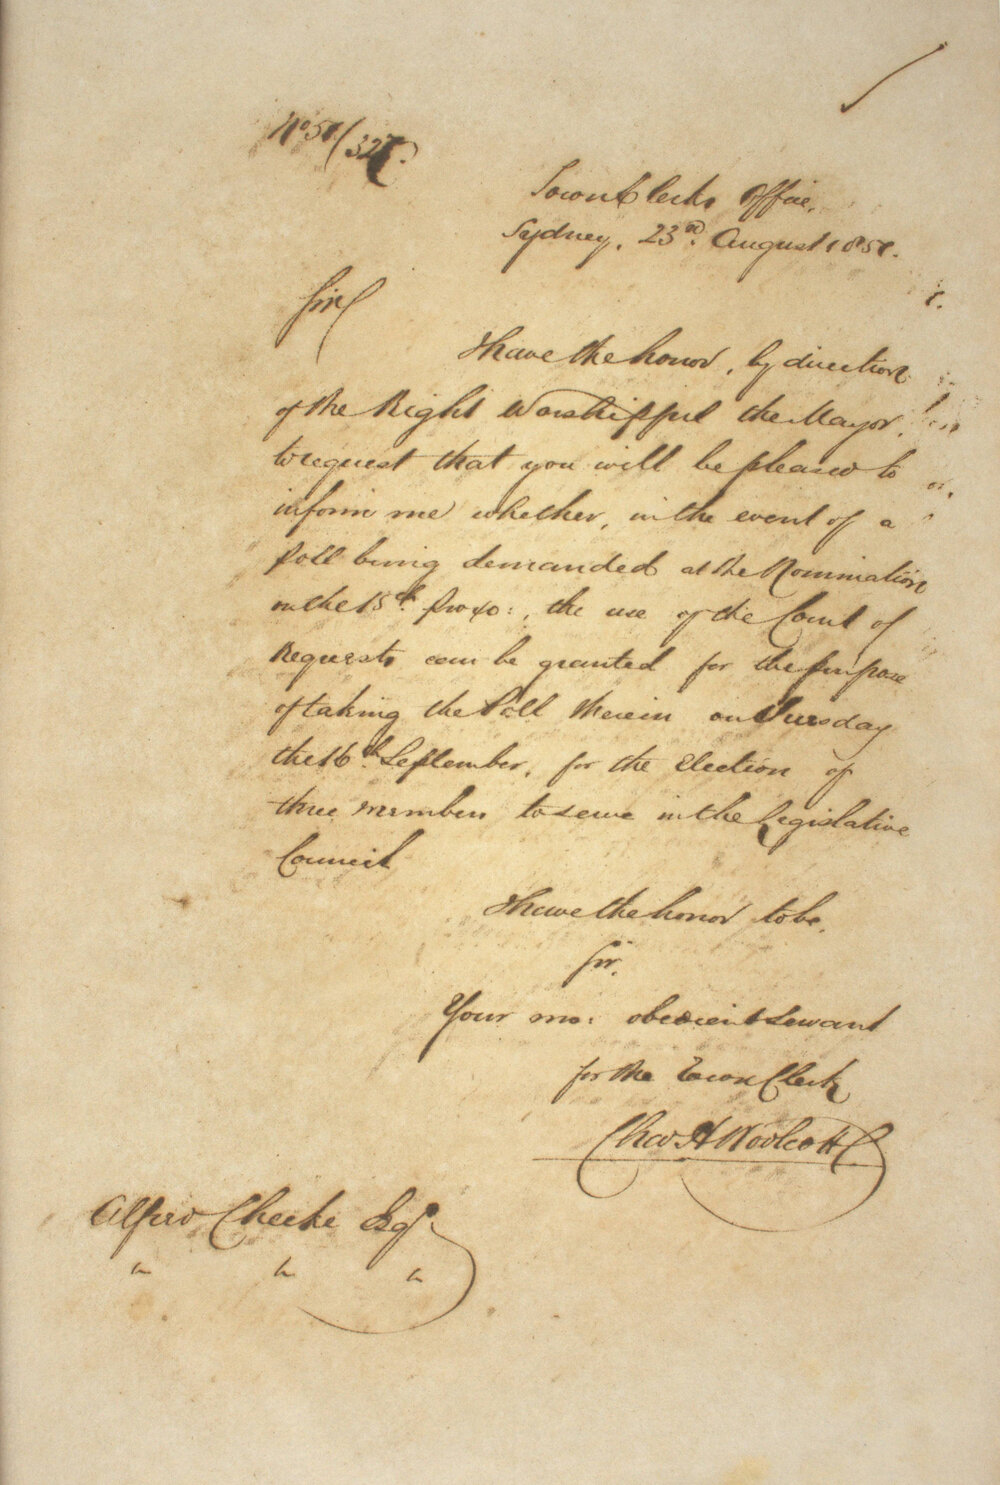 No 51/327.
Town Clerks Office,
Sydney, 23rd. August 1851.
Sir,
I have the honor, by direction
of the Right Worshipful the Mayor,
to request that you will be pleased to
inform me whether, in the event of a
Poll being demanded at the Nomination
on the 15th. Proxo:, the use of the Court of
Requests can be granted for the purpose
of taking the Poll therein on Tuesday
the 16th. September, for the Election of
three members to serve in the Legislative
Council
I have the honor to be,
Sir,
Your mo: obedient Servant
for the Town Clerk
Chas H Woolcott
Alfred Cheeke Esqr.
" " "